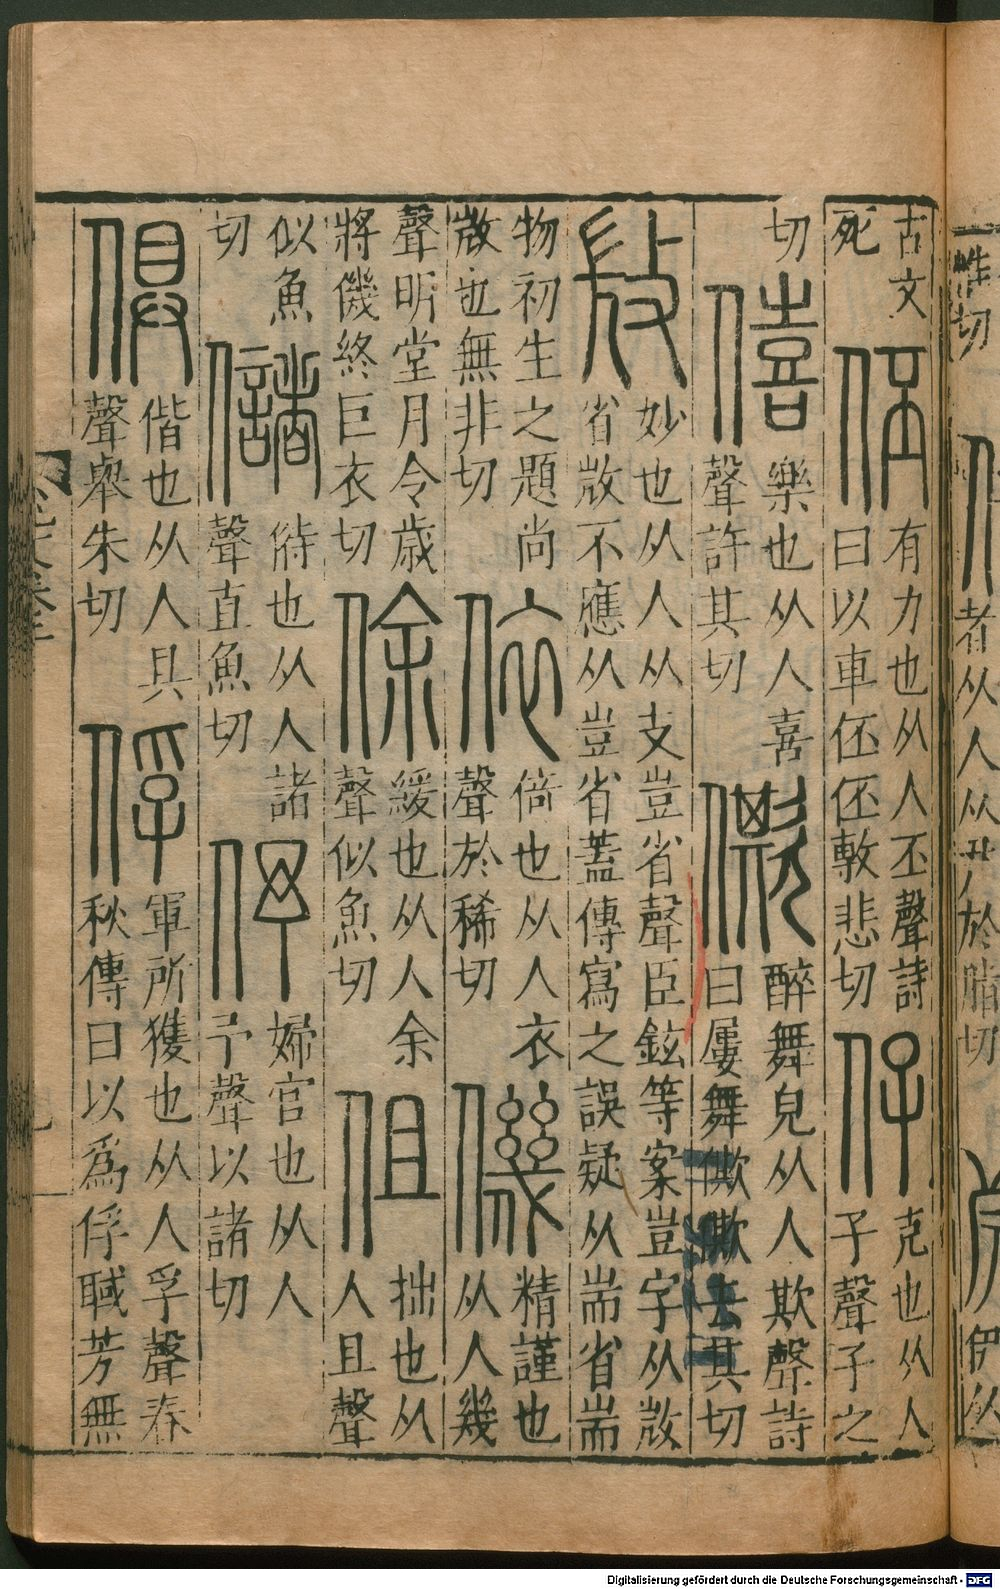 惟切
者从人从
於脂切
古文
死
伾
有力也从人丕聲詩
曰以車伾伾敷悲切
仔
克也从人
子聲子之
切
僖
樂也从人喜
聲許其切
僛
醉舞皃从人欺聲詩
曰屢舞僛僛去其切
𢼸
妙也从人从支豈省聲臣鉉等案豈字从𢼸
省𢼸不應从豈省蓋傳寫之誤疑从耑省耑
物初生之題尚
𢼸也無非切
依
倚也从人衣
聲於稀切
僟
精謹也
从人幾
聲明堂月令歲
將僟終巨衣切
俆
緩也从人余
聲似魚切
伹
拙也从
人且聲
似魚
切
儲
偫也从人諸
聲直魚切
伃
婦官也从人
予聲以諸切
俱
偕也从人具
聲舉朱切
俘
軍所獲也从人孚聲春
秋傳曰以爲俘聝芳無
Digitalisierung gefördert durch die Deutsche Forschungsgemeinschaft - DFG